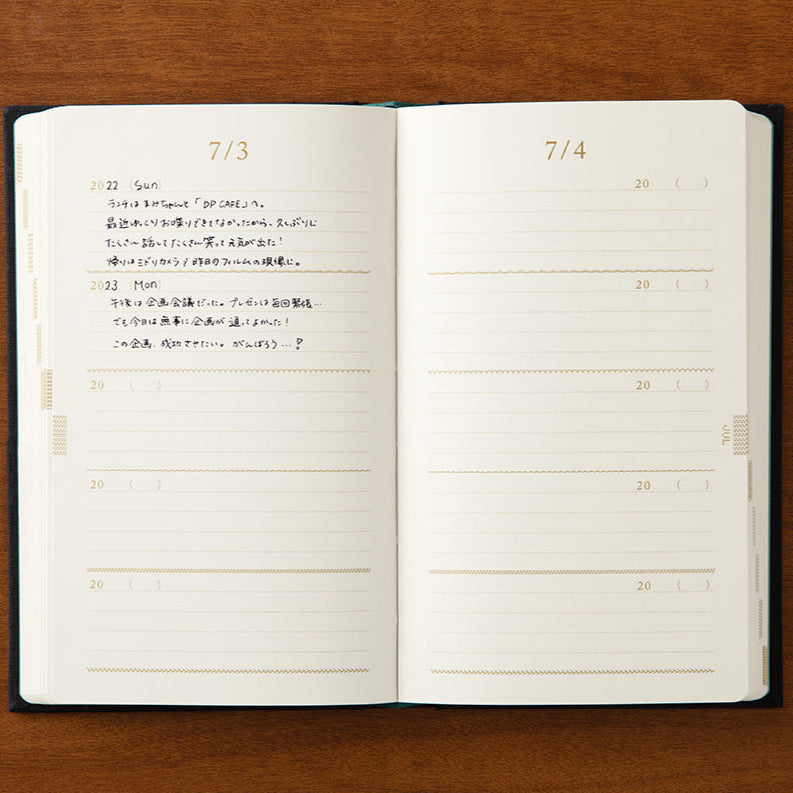 7/3
2022 (Sun)
ランチはまみちゃんと「DP CAFE」へ。
最近ゆっくりお喋りできてなかったから、久しぶりに
たくさん話してたくさん笑って元気が出た!
帰りはミドリカメラで昨日のフィルムの現像に。
2023 (Mon)
午後は企画会議だった。プレゼンは毎回緊張…
でも今日は無事に企画が通ってよかった!
この企画、成功させたい。がんばろう…!
20 ( )
20 ( )
20 ( )
7/4
20 ( )
20 ( )
20 ( )
20 ( )
20 ( )
JUL